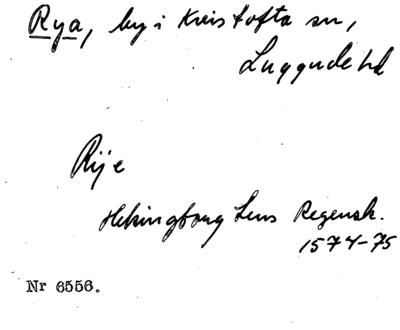 Rya, by i Kreistofta sn,
Luggude hd
Rije
Helsingborg Lens Regensk.
1574-75
Nr 6556.